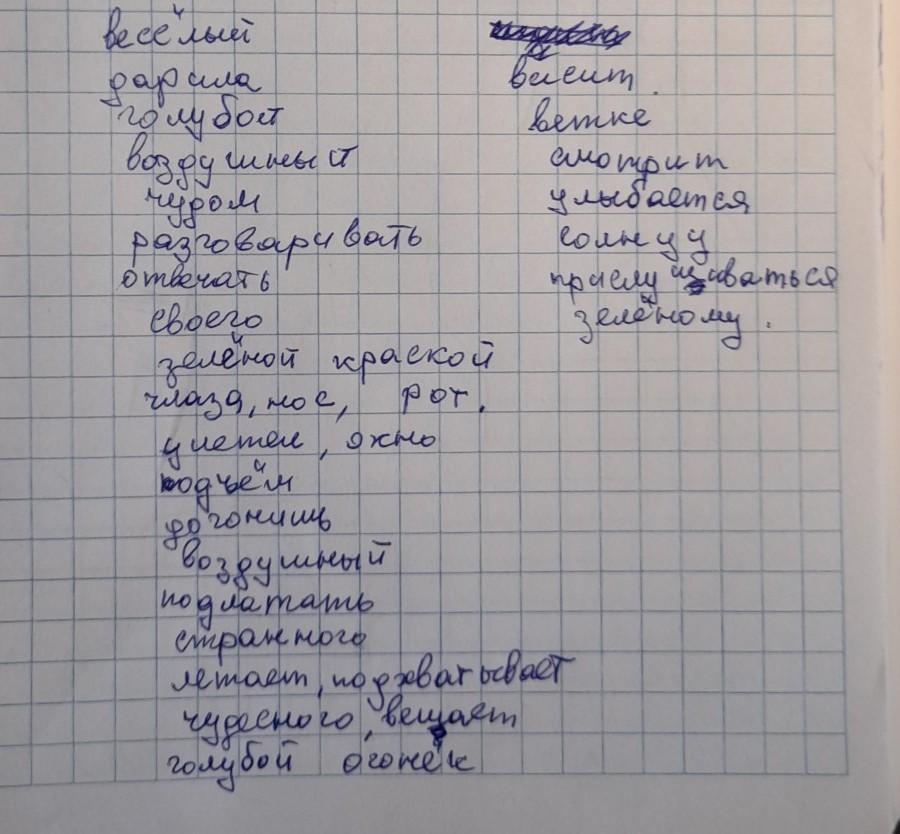 весёлый
дарила
голубой
воздушный
чудом
разговаривать
отвечать
своего
зелёной краской
глаза, нос, рот.
улетел, окно
подъём
догонишь
воздушный
подлатать
странного
летает, подхватывает
чудесного, вещает
голубой огонёк
висит.
ветке
смотрит
улыбается
солнцу
прислушиваться
зелёному.